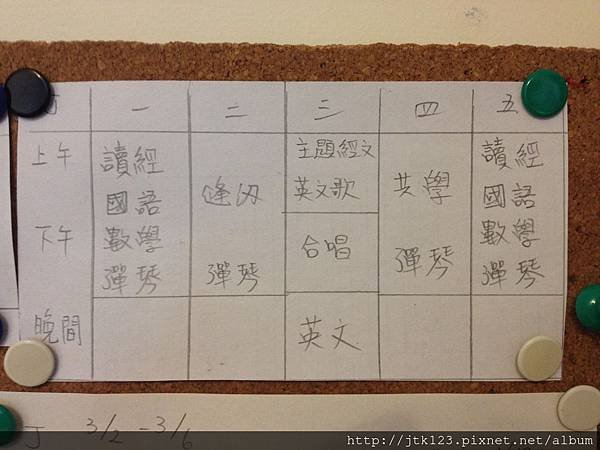 J 一 二 三 四 五
上午 讀經 主題經文 讀經
國語 逢甲 英文歌 共學 國語
下午 數學 合唱 數學
彈琴 彈琴 彈琴 彈琴
晚間 英文
J 3/2 - 3/6
http://jtk123.pixnet.net/album